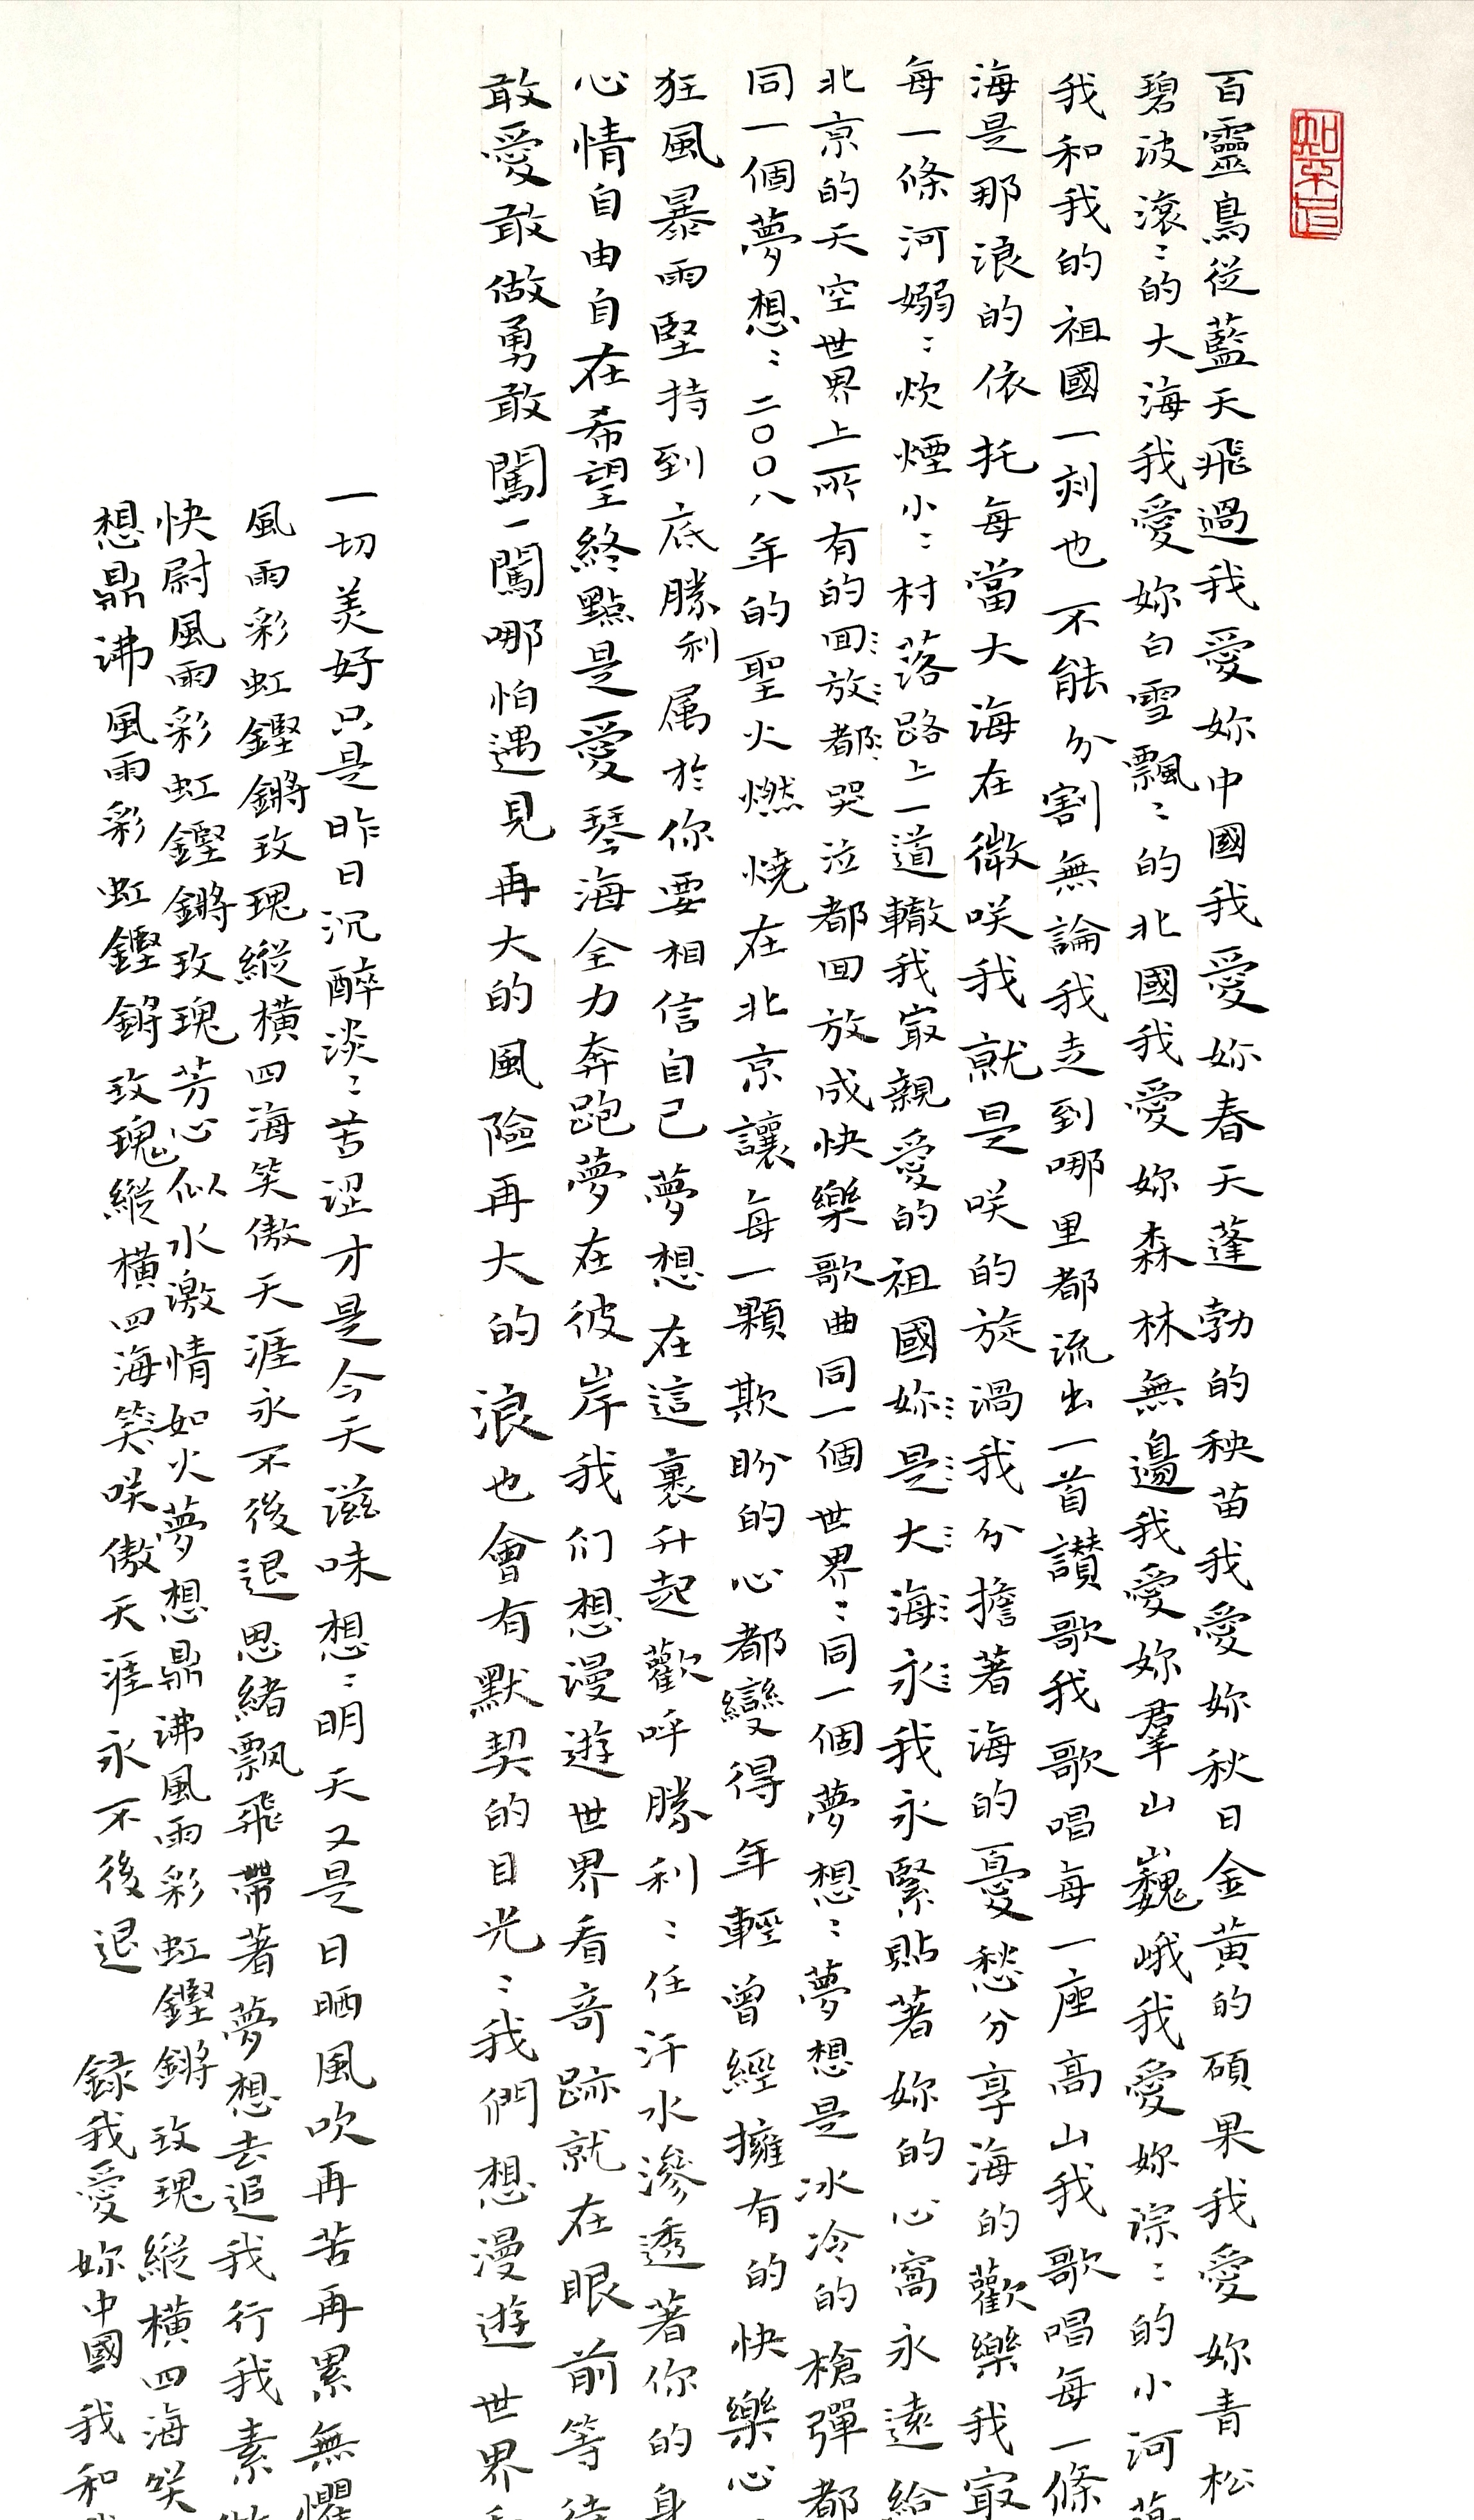 知不足
百靈鳥從藍天飛過我愛妳中國我愛妳春天蓬勃的秧苗我愛妳秋日金黃的碩果我愛妳青松
碧波滾〻的大海我愛妳白雪飄〻的北國我愛妳森林無邊我愛妳羣山巍峨我愛妳淙〻的小河
我和我的祖國一刻也不能分割無論我走到哪里都流出一首讃歌我歌唱每一座高山我歌唱每一條
海是那浪的依托每當大海在微咲我就是咲的旋渦我分擔著海的憂愁分享海的歡樂我寂
每一條河嫋〻炊煙小〻村落路上一道轍我寂親愛的祖國妳是大海永我永緊貼著妳的心窩永遠給
北京的天空世界上所有的回放都哭泣都回放成快樂歌曲同一個世界〻同一個夢想〻夢想是冰冷的槍彈都
同一個夢想〻二〇〇八年的聖火燃燒在北京讓每一顆欺盼的心都變得年輕曾經擁有的快樂心
狂風暴雨堅持到底勝利属於你要相信自己夢想在這裹升起歡呼勝利〻任汗水滲透著你的身
心情自由自在希望終點是愛琴海全力奔跑夢在彼岸我们想漫遊世界看奇跡就在眼前等待
敢愛敢做勇敢闖一闖哪怕遇見再大的風險再大的浪也會有默契的目光〻我們想漫遊世界
一切美好只是昨日沉醉淡〻苦涩才是今天滋味想〻明天又是日晒風吹再苦再累無懼
風雨彩虹鏗鏘玫瑰縱橫四海笑傲天涯永不後退思緒飘飛帶著夢想去追我行我素
快尉風雨彩虹鏗鏘玫瑰芳心似水激情如火夢想鼎沸風雨彩虹鏗鏘玫瑰縱橫四海咲
想鼎沸風雨彩虹鏗鏘玫瑰縱橫四海笑咲傲天涯永不後退 録我愛妳中國我和